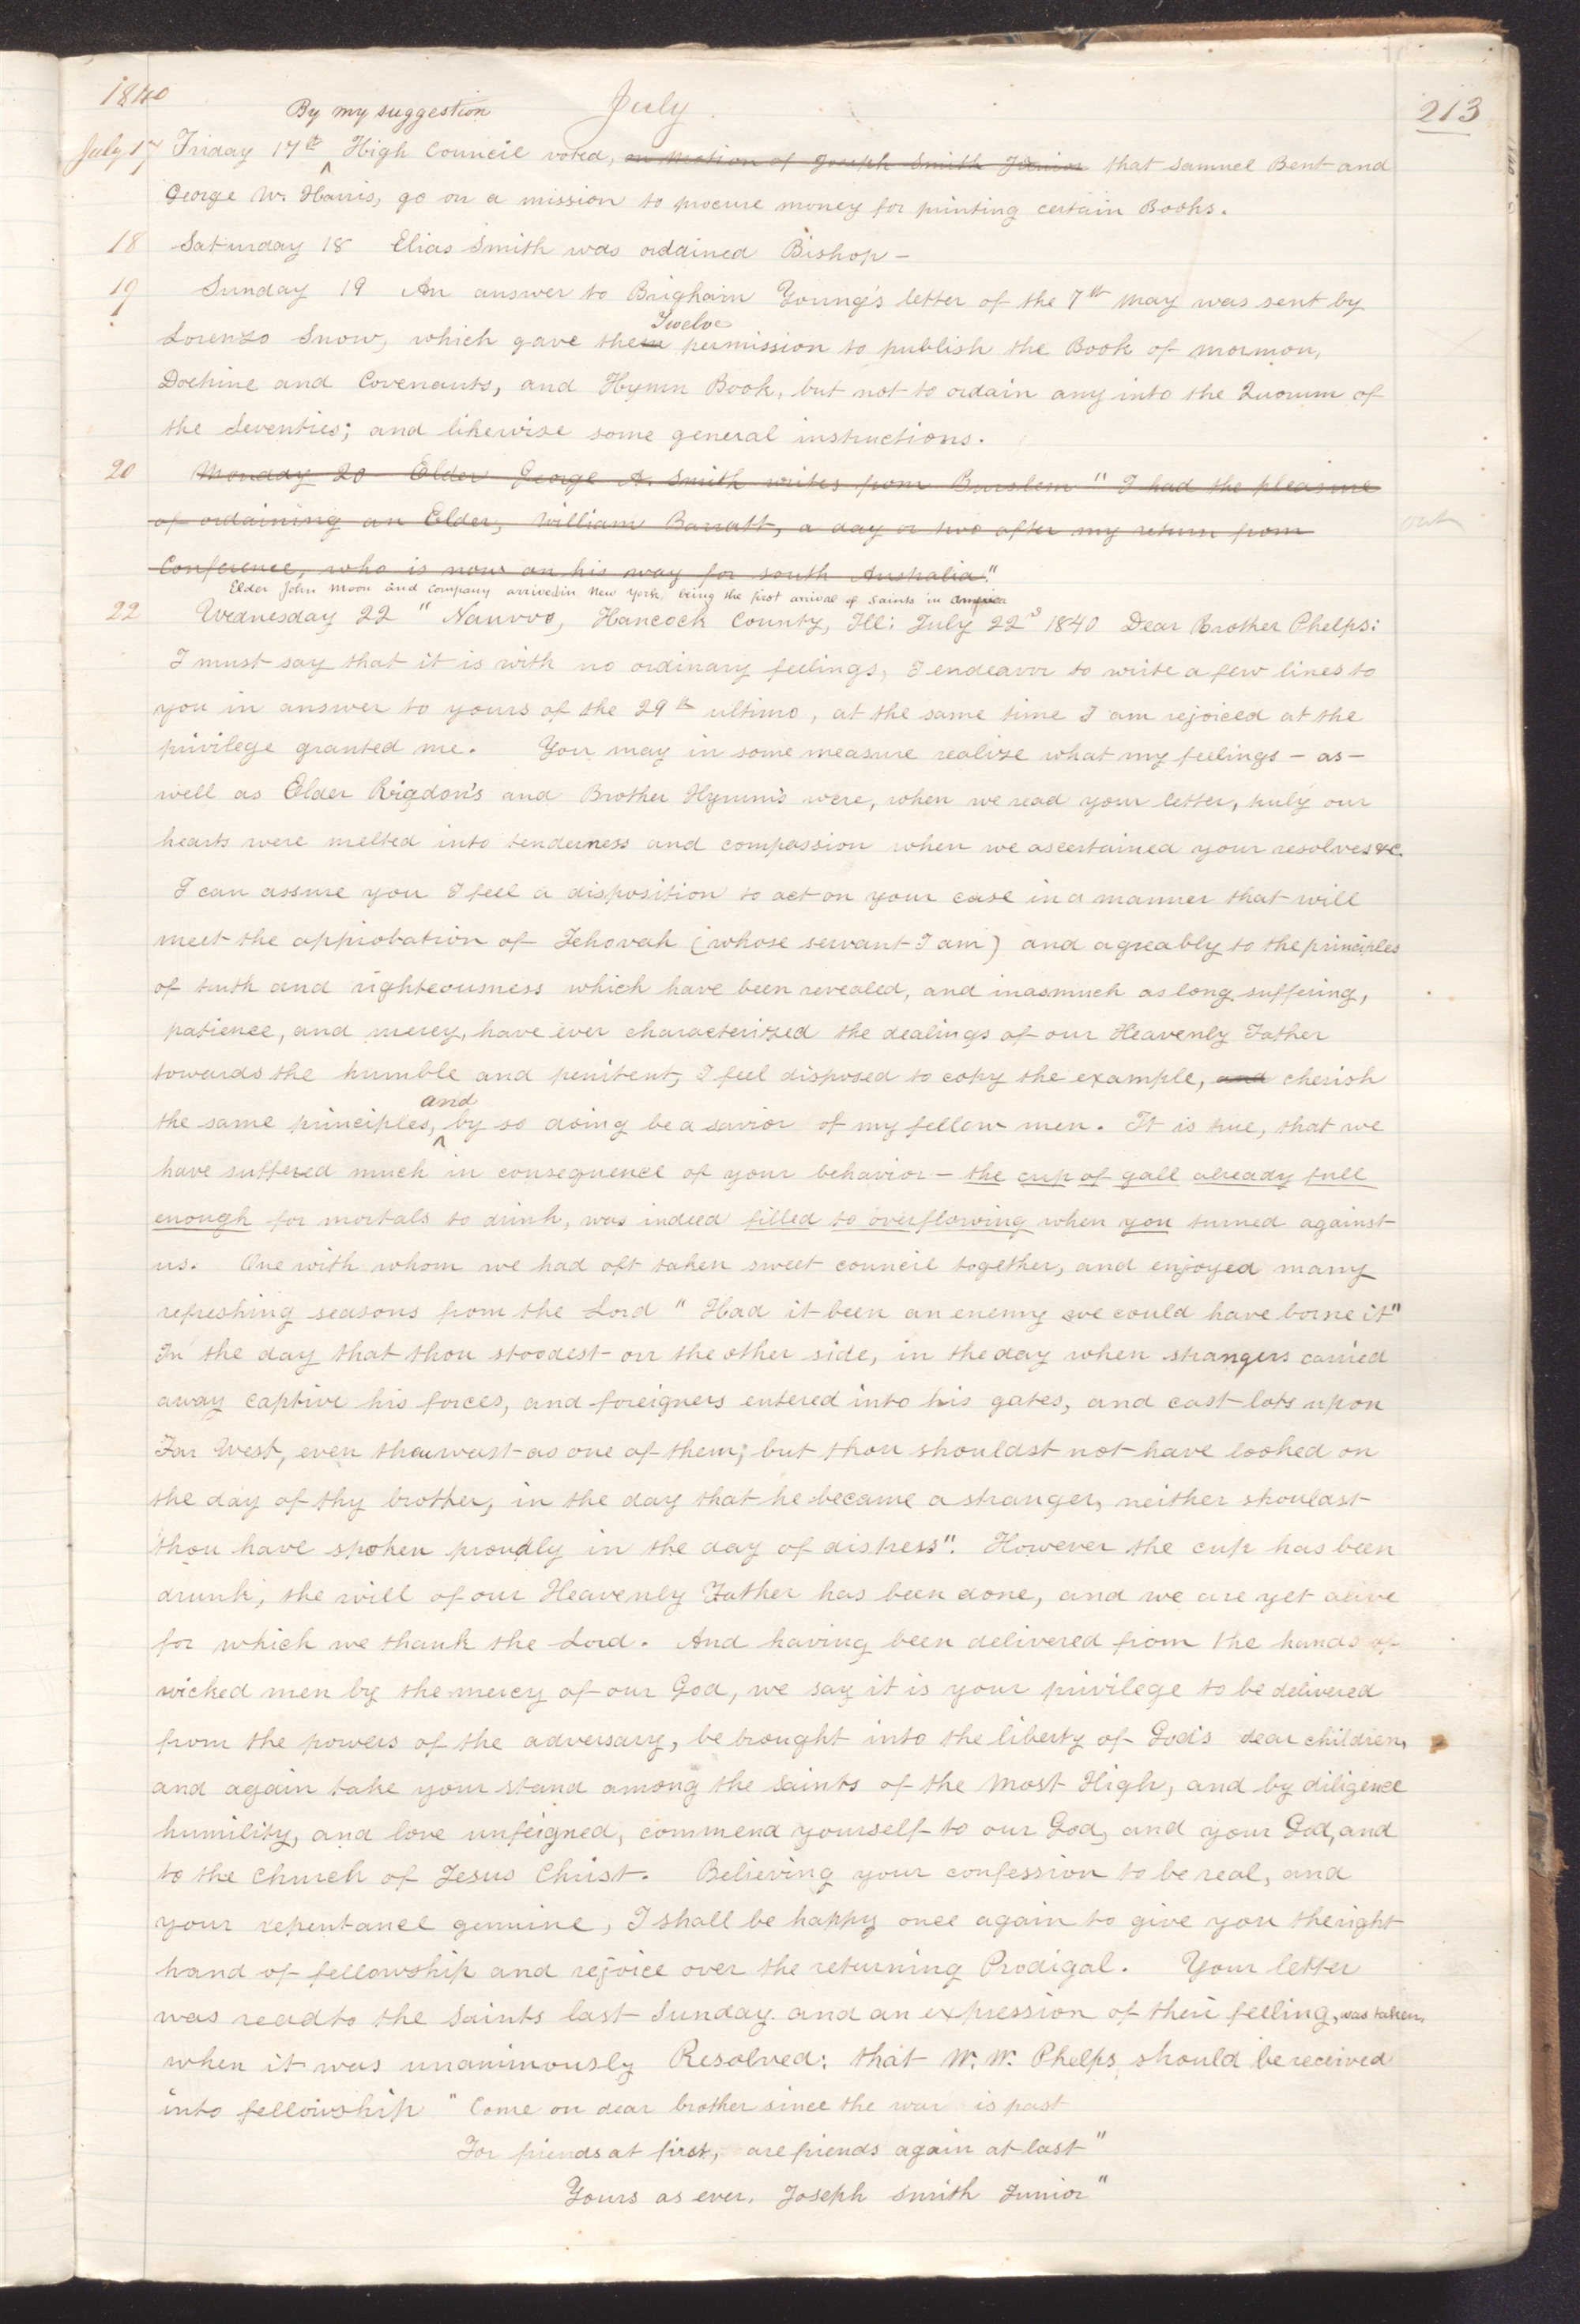 1840
By my suggestion July 213
July 17 Friday 17th ^ High Council voted, on motion of Joseph Smith Junior that Samuel Bent and
George W. Harris, go on a mission to procure money for printing certain Books.
18 Saturday 18 Elias Smith was ordained Bishop —
19 Sunday 19 An answer to Brigham Young's letter of the 7th May was sent by
Twelve
Lorenzo Snow, which gave them permission to publish the Book of Mormon,
Doctrine and Covenants, and Hymn Book, but not to ordain any into the Quorum of
the Seventies; and likewise some general instructions.
20 Monday 20 Elder George A. Smith writes from Burslem "I had the pleasure
of ordaining an Elder, William Barratt, a day or two after my return from out
Conference, who is now on his way for south Australia."
Elder John Moon and company arrived in New York, being the first arrival of Saints in America
22 Wednesday 22 "Nauvoo, Hancock County, Ill: July 22d 1840 Dear Brother Phelps:
I must say that it is with no ordinary feelings, I endeavor to write a few lines to
you in answer to yours of the 29th ultimo, at the same time I am rejoiced at the
privilege granted me. You may in some measure realize what my feelings — as —
well as Elder Rigdon's and Brother Hyrum's were, when we read your letter, truly our
hearts were melted into tenderness and compassion when we ascertained your resolves &c.
I can assure you I feel a disposition to act on your case in a manner that will
meet the approbation of Jehovah (whose servant I am) and agreably to the principles
of truth and righteousness which have been revealed, and inasmuch as long suffering,
patience, and mercy, have ever characterized the dealings of our Heavenly Father
towards the humble and penitent, I feel disposed to copy the example, and cherish
and
the same principles, ^ by so doing be a savior of my fellow men. It is true, that we
have suffered much in consequence of your behavior — the cup of gall already full
enough for mortals to drink, was indeed filled to overflowing when you turned against
us. One with whom we had oft taken sweet council together, and enjoyed many
refreshing seasons from the Lord "Had it been an enemy we could have borne it"
In the day that thou stoodest on the other side, in the day when strangers carried
away captive his forces, and foreigners entered into his gates, and cast lots upon
Far West, even thou wast as one of them; but thou shouldst not have looked on
the day of thy brother, in the day that he became a stranger, neither shouldst
thou have spoken proudly in the day of distress". However the cup has been
drunk, the will of our Heavenly Father has been done, and we are yet alive
for which we thank the Lord. And having been delivered from the hands of
wicked men by the mercy of our God, we say it is your privilege to be delivered
from the powers of the adversary, be brought into the liberty of God's dear children,
and again take your stand among the Saints of the Most High, and by diligence
humility, and love unfeigned, commend yourself to our God, and your God, and
to the Church of Jesus Christ. Believing your confession to be real, and
your repentance genuine, I shall be happy once again to give you the right
hand of fellowship and rejoice over the returning Prodigal. Your letter
was read to the Saints last Sunday and an expression of their feeling, was taken,
when it was unanimously Resolved: that W. W. Phelps should be received
into fellowship "Come on dear brother since the war is past
For friends at first, are friends again at last"
Yours as ever. Joseph Smith Junior"